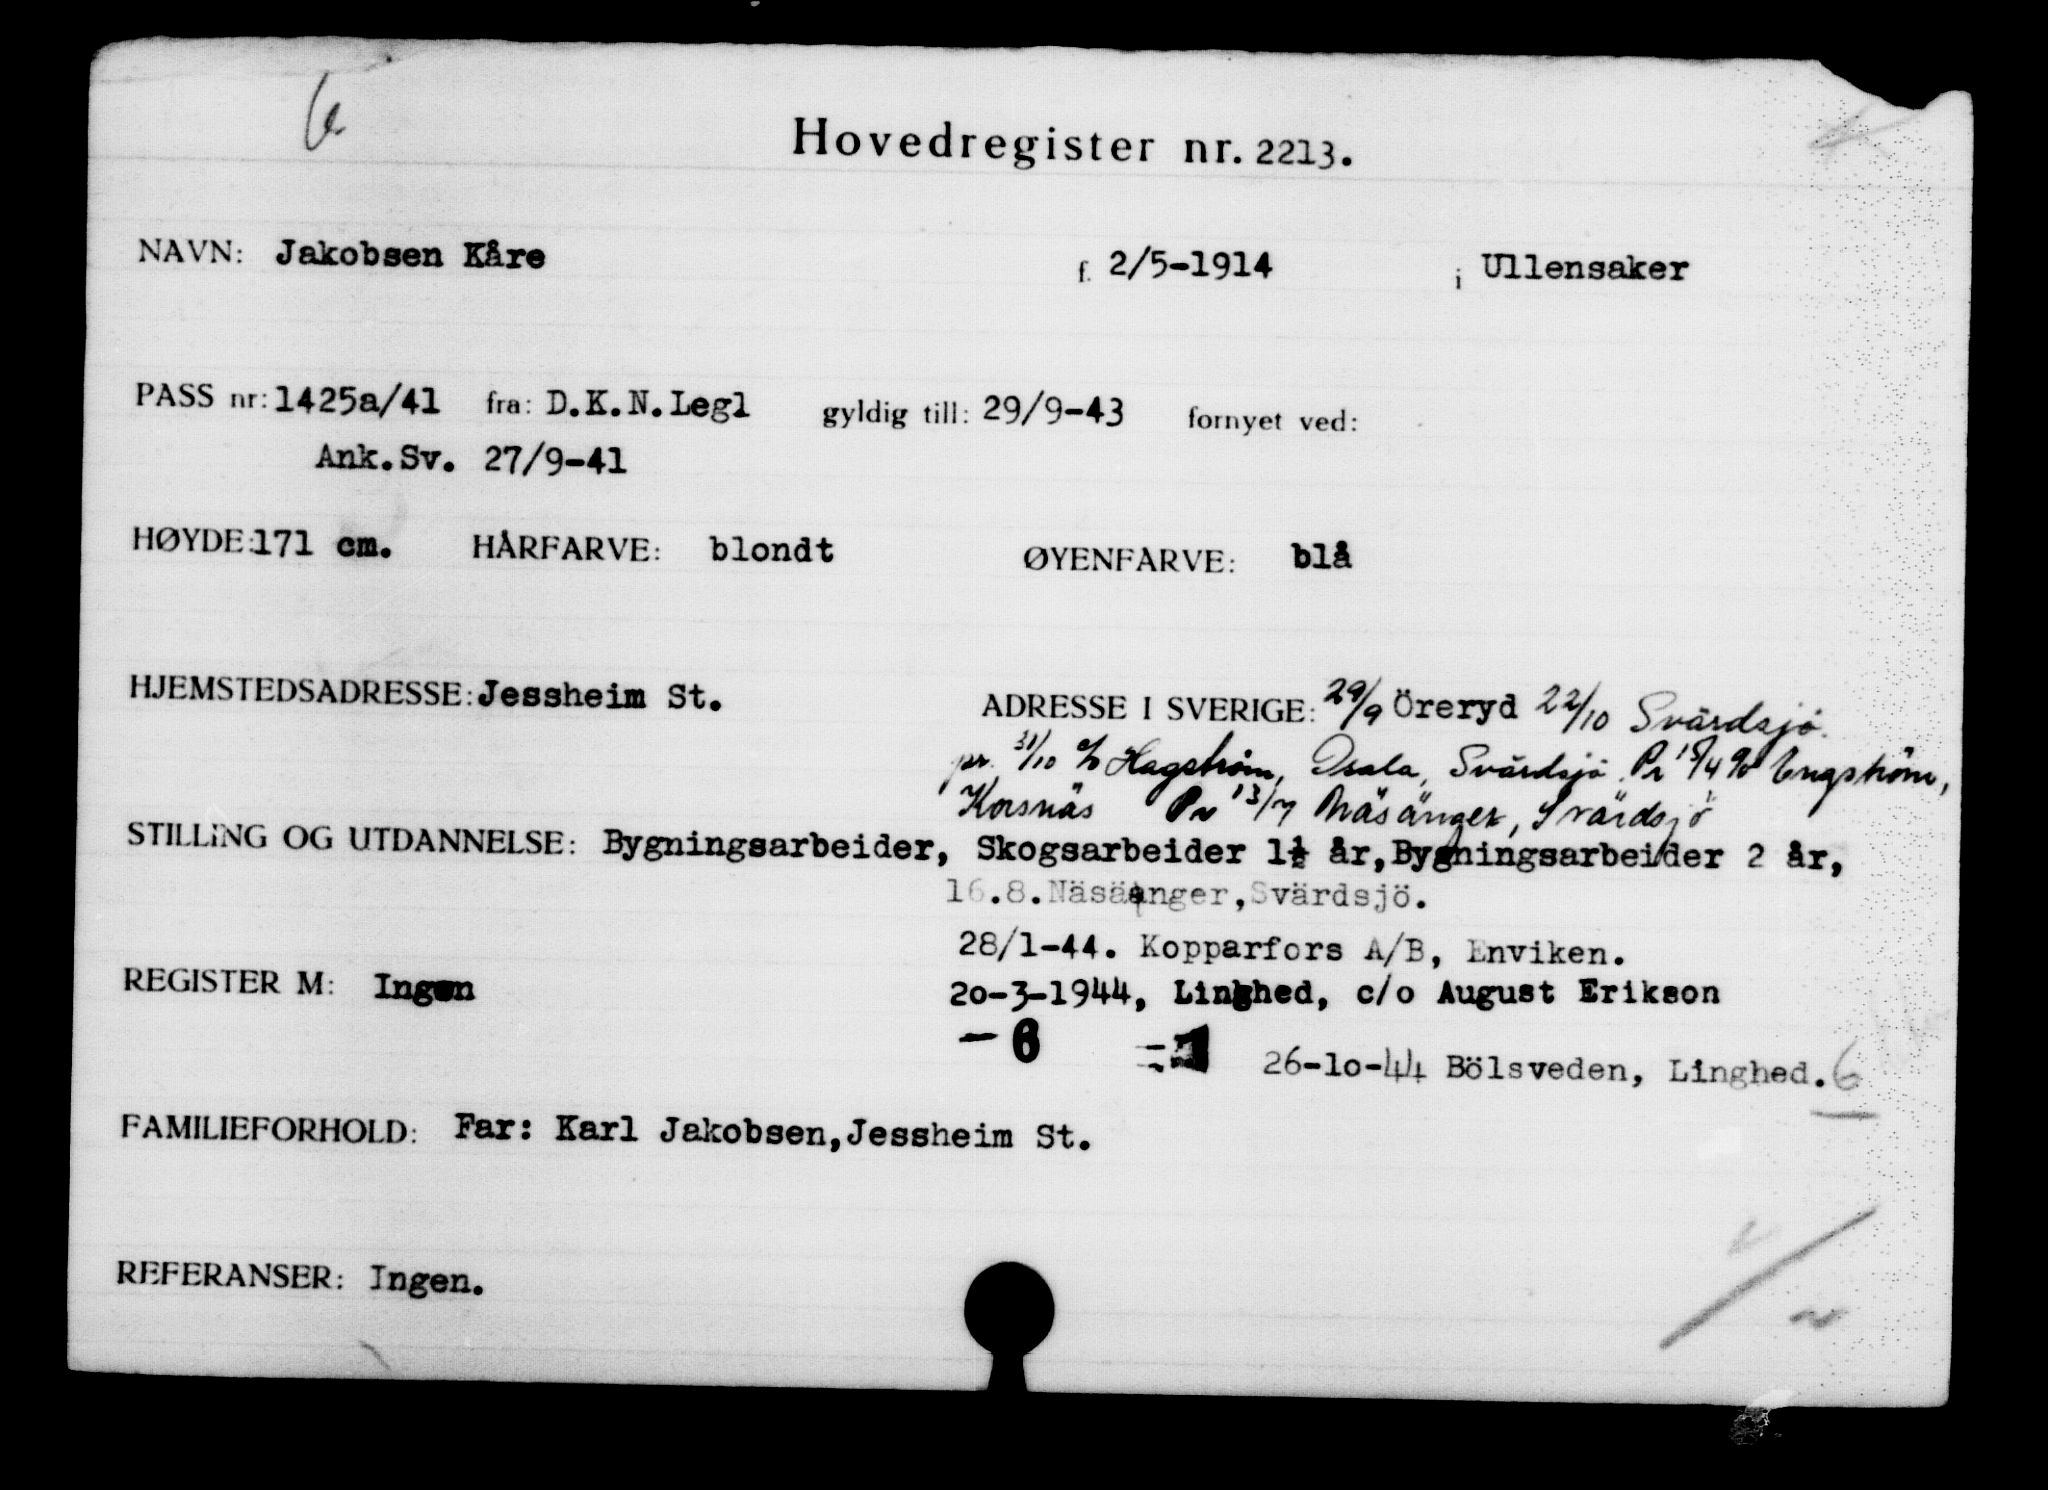 Hovedregister nr. 2213.
NAVN: Jakobsen Kåre f. 2/5-1914 i Ullensaker
PASS nr: 1425a/41 fra: D.K.N.Legl gyldig till: 29/9-43 fornyet ved:
Ank.Sv. 27/9-41
HØYDE: 171 cm. HÅRFARVE: blondt ØYENFARVE: blå
HJEMSTEDSADRESSE: Jessheim St. ADRESSE I SVERIGE: 29/9 Öreryd 22/10 Svärdsjö.
pr. 31/10 c/o Hagström, Osala, Svärdsjö. Pr 15/4 c/o Engström,
Korsnäs Pr 13/7 Näsänger, Svärdsjö
STILLING OG UTDANNELSE: Bygningsarbeider, Skogsarbeider 1½ år, Bygningsarbeider 2 år,
16.8. Näsänger, Svärdsjö.
28/1-44. Kopparfors A/B, Enviken.
REGISTER M: Ingen 20-3-1944, Linghed, c/o August Erikson
- 6 26-10-44 Bölsveden, Linghed. 6
FAMILIEFORHOLD: Far: Karl Jakobsen, Jessheim St.
REFERANSER: Ingen.